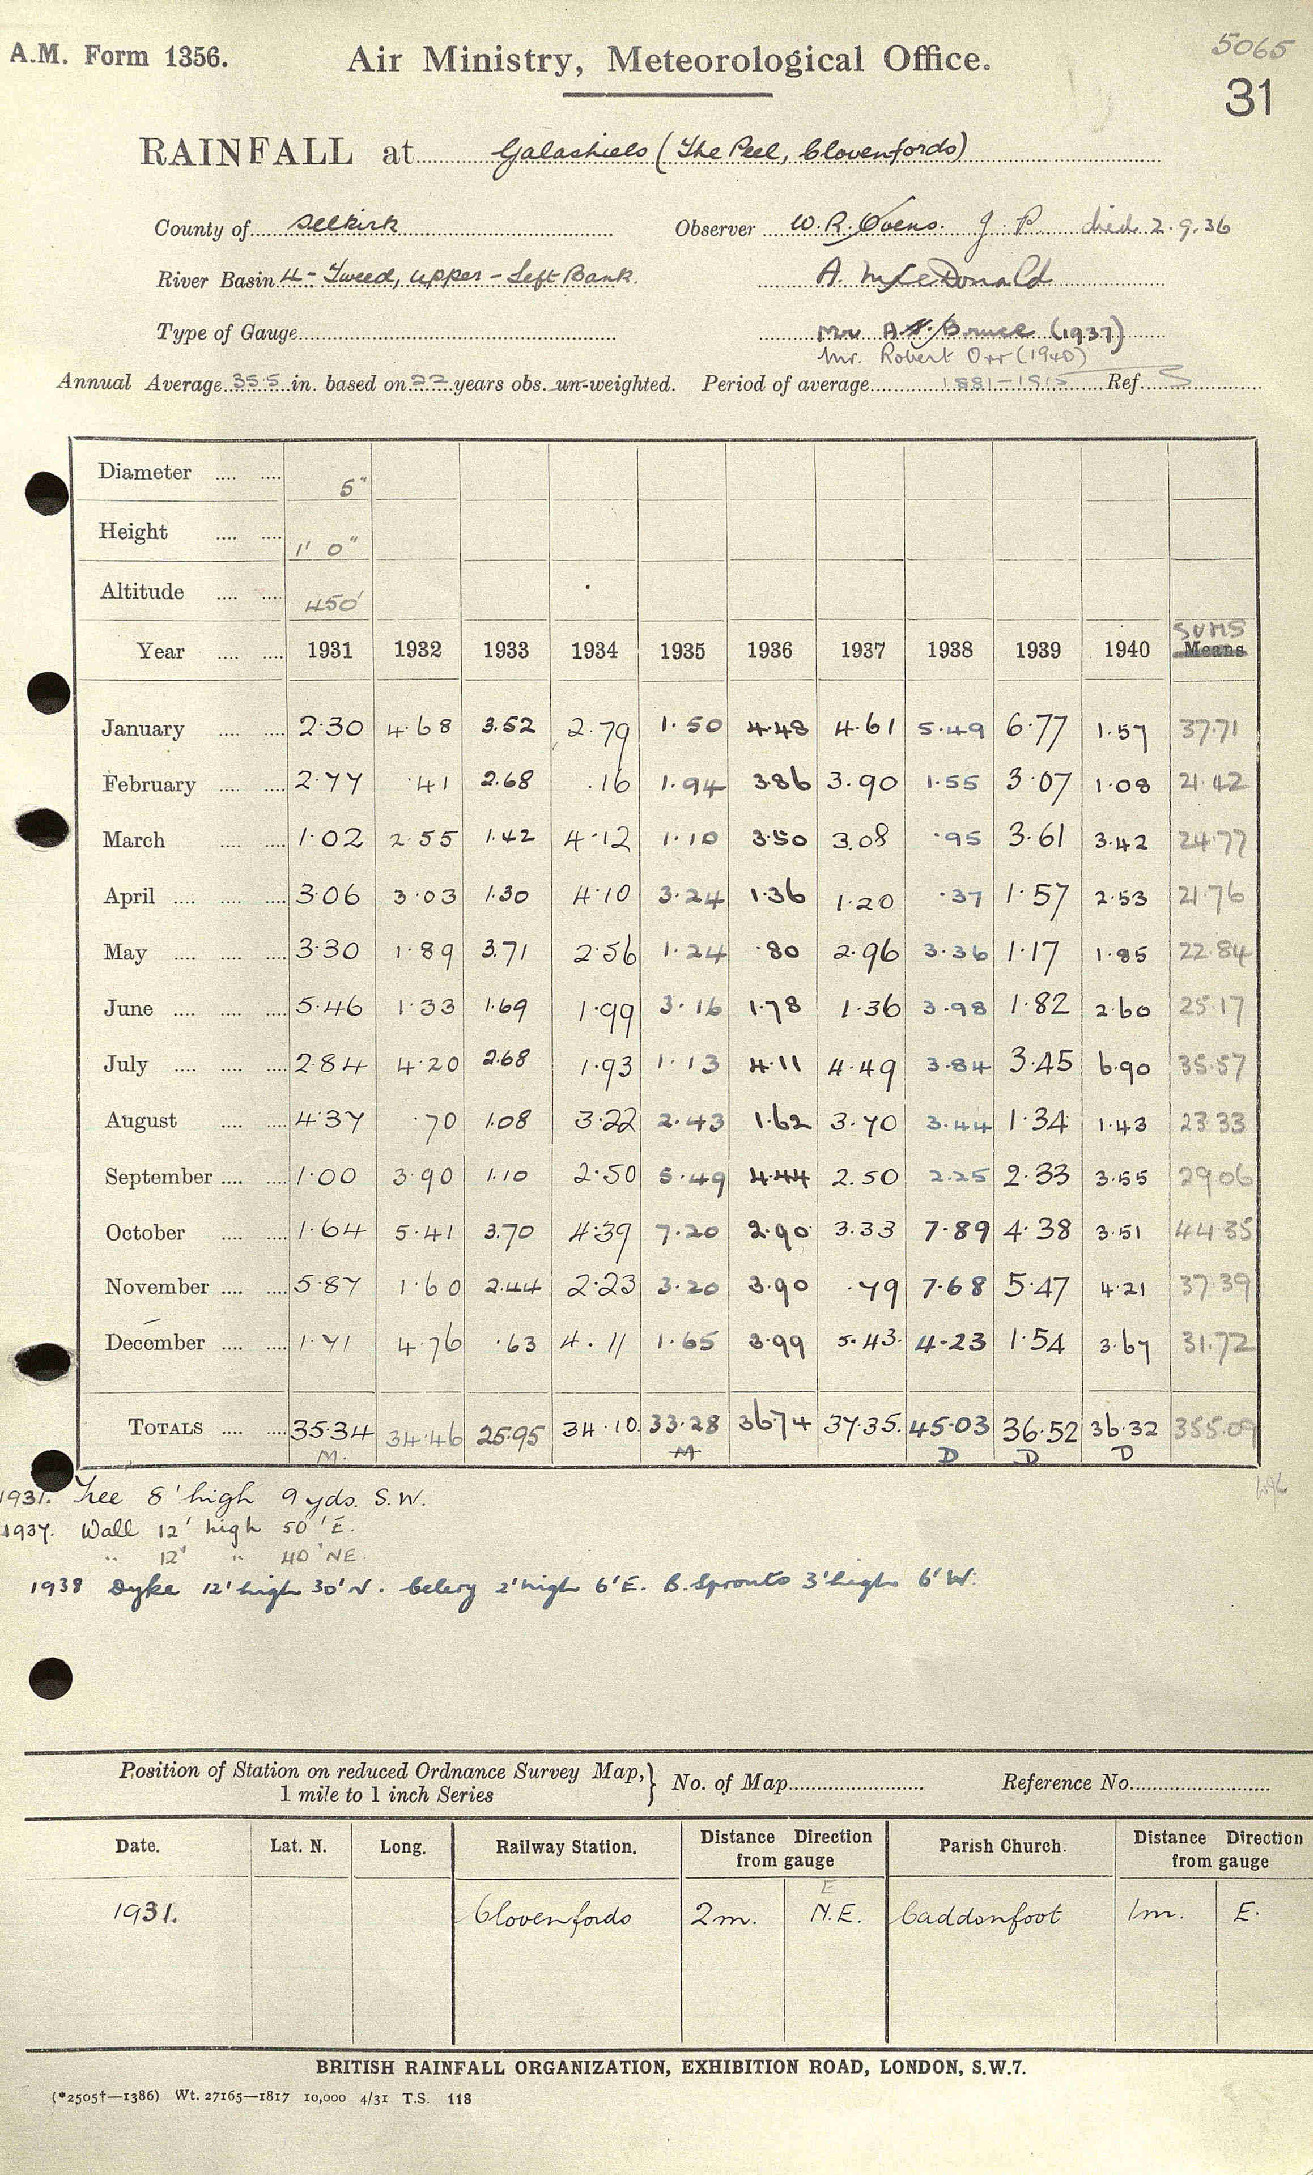 A.M. Form 1356.
Air Ministry, Meteorological Office.
5065
31
RAINFALL at Galashiels (The Peel, Clovenfords)
County of Selkirk
Observer W. R. Ovens. J. P. died 2.9.36
River Basin 4 - Tweed, upper - Left Bank.
A. McDonald
Type of Gauge
Mr A. Bruce (1937)
Mr. Robert Orr (1940)
Annual Average 35.5 in. based on 22 years obs. un-weighted. Period of average Ref.
Diameter 5"
Height 1' 0"
Altitude 450'
SUMS
Year 1931 1932 1933 1934 1935 1936 1937 1938 1939 1940 Means
January 2.30 4.68 3.52 2.79 1.50 4.48 4.61 5.49 6.77 1.57 37.71
February 2.77 .41 2.68 .16 1.94 3.86 3.90 1.55 3.07 1.08 21.42
March 1.02 2.55 1.42 4.12 1.10 3.50 3.08 .95 3.61 3.42 24.77
April 3.06 3.03 1.30 4.10 3.24 1.36 1.20 .37 1.57 2.53 21.76
May 3.30 1.89 3.71 2.56 1.24 .80 2.96 3.36 1.17 1.85 22.84
June 5.46 1.33 1.69 1.99 3.16 1.78 1.36 3.98 1.82 2.60 25.17
July 2.84 4.20 2.68 1.93 1.13 4.11 4.49 3.84 3.45 6.90 35.57
August 4.37 .70 1.08 3.22 2.43 1.62 3.70 3.44 1.34 1.43 23.33
September 1.00 3.90 1.10 2.50 5.49 4.44 2.50 2.25 2.33 3.55 29.06
October 1.64 5.41 3.70 4.39 7.20 2.90 3.33 7.89 4.38 3.51 44.35
November 5.87 1.60 2.44 2.23 3.20 3.90 .79 7.68 5.47 4.21 37.39
December 1.71 4.76 .63 4.11 1.65 3.99 5.43 4.23 1.54 3.67 31.72
TOTALS 35.34 34.46 25.95 34.10 33.28 36.74 37.35 45.03 36.52 36.32 355.09
M. M D D D
1931. Tree 8' high 9 yds. S.W.
1937. Wall 12' high 50' E.
" 12' " 40' NE.
1938 Dyke 12' high 30' N. Celery 2' high 6' E. B. Sprouts 3' high 6' W.
Position of Station on reduced Ordnance Survey Map, 1 mile to 1 inch Series
No. of Map
Reference No.
Date. Lat. N. Long. Railway Station. Distance Direction from gauge Parish Church. Distance Direction from gauge
E
1931. Clovenfords 2m. N.E. Caddonfoot 1m. E.
BRITISH RAINFALL ORGANIZATION, EXHIBITION ROAD, LONDON, S.W.7.
(*2505†—1386) Wt. 27165—1817 10,000 4/31 T.S. 118